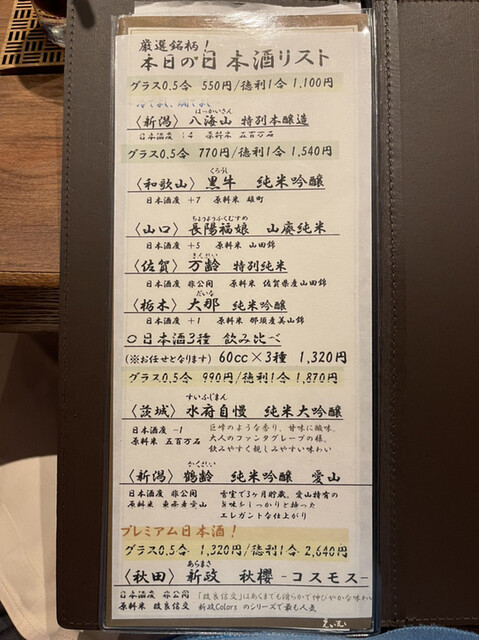 厳選銘柄！
本日の日本酒リスト
グラス0.5合 550円/徳利1合 1,100円
はっかいさん
〈新潟〉八海山 特別本醸造
日本酒度 +4 原料米 五百万石
グラス0.5合 770円/徳利1合 1,540円
くろうし
〈和歌山〉黒牛 純米吟醸
日本酒度 +7 原料米 雄町
ちょうようふくむすめ
〈山口〉長陽福娘 山廃純米
日本酒度 +5 原料米 山田錦
〈佐賀〉万齢 特別純米
日本酒度 非公開 原料米 佐賀県産山田錦
だいな
〈栃木〉大那 純米吟醸
日本酒度 +1 原料米 那須産美山錦
〇日本酒3種 飲み比べ
(※お任せとなります) 60cc×3種 1,320円
グラス0.5合 990円/徳利1合 1,870円
すいふじまん
〈茨城〉水府自慢 純米大吟醸
日本酒度 -1
原料米 五百万石
巨峰のような香り、甘味に酸味。
大人のファンタグレープの様。
飲みやすく親しみやすい味わい
かくれい
〈新潟〉鶴齢 純米吟醸 愛山
日本酒度 非公開
原料米 兵庫産愛山
雪室で3ヶ月貯蔵。愛山特有の
旨味をしっかりと持った
エレガントな仕上がり
プレミアム日本酒！
グラス0.5合 1,320円/徳利1合 2,640円
あらまさ
〈秋田〉新政 秋櫻 -コスモス-
日本酒度 非公開
原料米 改良信交
「改良信交」はあくまでも滑らかで伸びやかな味わい
新政Colorsのシリーズで最も人気